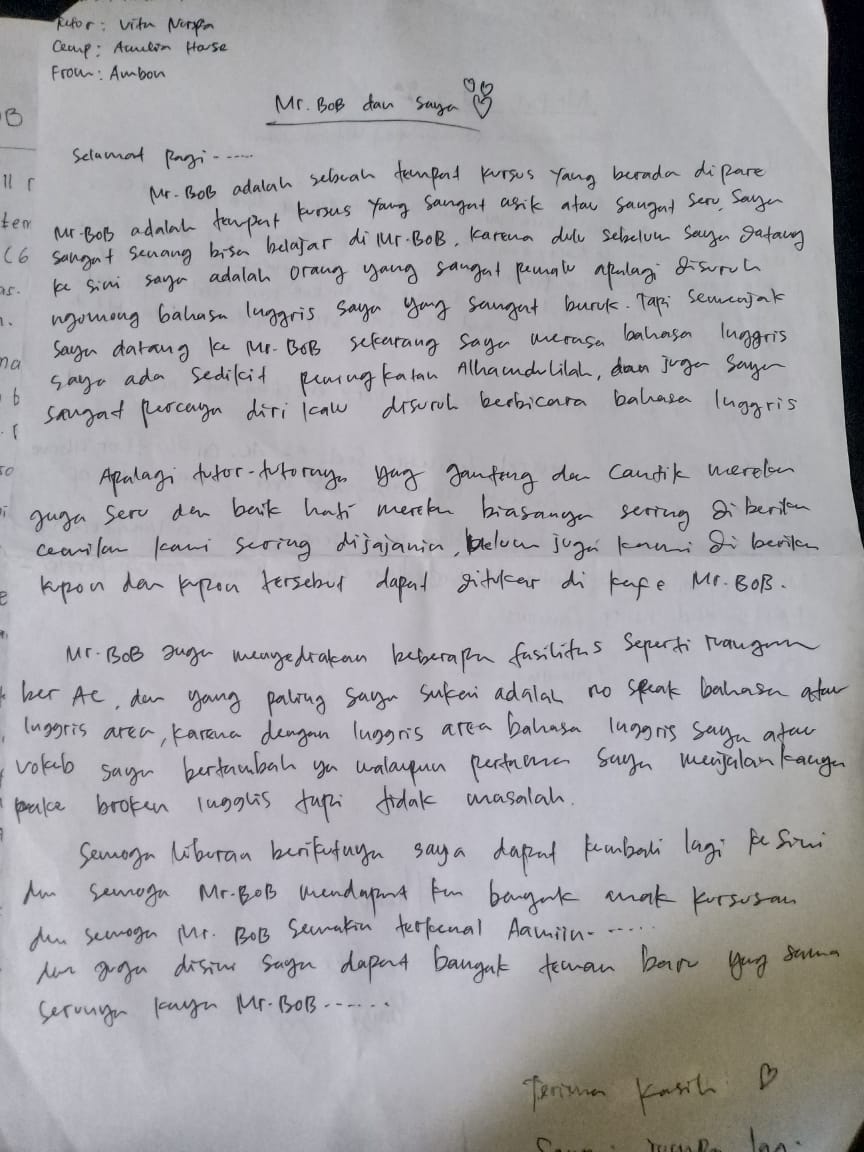 Camp: Amelia House
From: Ambon
Mr. BOB dan saya
Selamat pagi - - - - -
Mr. BOB adalah sebuah tempat kursus yang berada di pare
Mr. BOB adalah tempat kursus yang sangat asik atau sangat seru, saya
sangat senang bisa belajar di Mr. BOB, karena dulu sebelum saya datang
ke sini saya adalah orang yang sangat pemalu apalagi disuruh
ngomong bahasa Inggris saya yang sangat buruk. Tapi semenjak
saya datang ke Mr. BOB sekarang saya merasa bahasa Inggris
saya ada sedikit peningkatan Alhamdulilah, dan juga saya
sangat percaya diri kalw disuruh berbicara bahasa Inggris
Apalagi tutor-tutornya yag ganteng dan cantik mereka
juga seru dan baik hati mereka biasanya sering di berikan
ceamilan kami sering dijajanin, belum juga kami di berikan
kupon dan kupon tersebut dapat ditukar di kafe Mr. BOB.
Mr. BOB juga menyediakan beberapa fasilitas seperti ruangan
ber AC, dan yang paling saya sukai adalah no speak bahasa atau
Inggris area, karena dengan Inggris area bahasa Inggris saya atau
vokab saya bertambah ya walaupun pertama saya menjalankannya
pake broken Inggris tapi tidak masalah.
Semoga liburan berikutnya saya dapat kembali lagi ke sini
dan semoga Mr. BOB mendapat kan banyak anak kursusan
dan semoga Mr. BOB semakin terkenal Aamiin- - - - - -
dan juga disini saya dapat banyak teman baru yag sama
serunya kaya Mr. BOB - - - - - -
Terima kasih